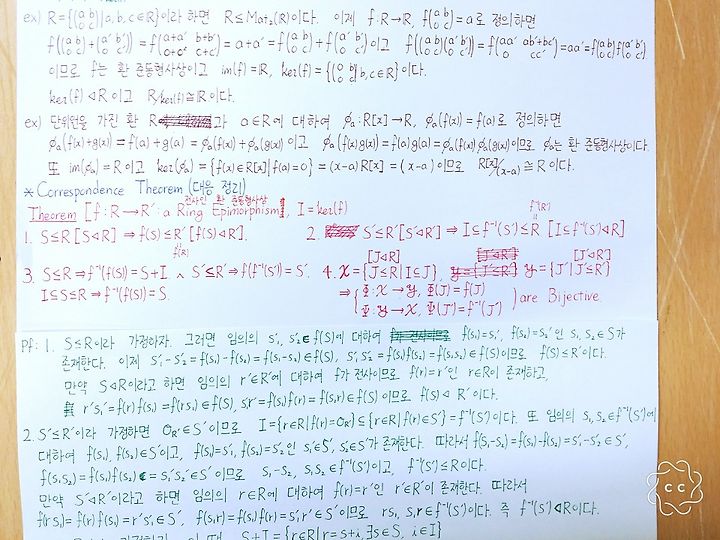 ex) R={(a b / 0 c)|a,b,c∈R}이라 하면 R≤Mat₂(R)이다. 이제 f:R→R, f(a b / 0 c)=a로 정의하면
f((a b / 0 c)+(a' b' / 0 c'))=f(a+a' b+b' / 0+0 c+c')=a+a'=f(a b / 0 c)+f(a' b' / 0 c')이고 f((a b / 0 c)(a' b' / 0 c'))=f(aa' ab'+bc' / 0 cc')=aa'=f(a b / 0 c)f(a' b' / 0 c')
이므로 f는 환 준동형사상이고 im(f)=R, ker(f)={(0 b / 0 c)|b,c∈R}이다.
ker(f)◁R이고 R/ker(f)≅R이다.
ex) 단위원을 가진 환 R과 a∈R에 대하여 ϕa:R[x]→R, ϕa(f(x))=f(a)로 정의하면
ϕa(f(x)+g(x))=f(a)+g(a)=ϕa(f(x))+ϕa(g(x))이고 ϕa(f(x)g(x))=f(a)g(a)=ϕa(f(x))ϕa(g(x))이므로 ϕa는 환 준동형사상이다.
또 im(ϕa)=R이고 ker(ϕa)={f(x)∈R[x]|f(a)=0}=(x-a)R[x]=(x-a)이므로 R[x]/(x-a)≅R이다.
*Correspondence Theorem(대응 정리)
전사인 환 준동형사상
Theorem [f:R→R': a Ring Epimorphism], I=ker(f)
1. S≤R[S◁R]⇒f(S)≤R'[f(S)◁R'].
im(f)
2. S'≤R'[S'◁R']⇒I⊆f⁻¹(S')≤R [I⊆f⁻¹(S')◁R]
f⁻¹(R')
3. S≤R⇒f⁻¹(f(S))=S+I ∧ S'≤R'⇒f(f⁻¹(S'))=S'.
I⊆S≤R⇒f⁻¹(f(S))=S.
[J◁R] [J'◁R']
4. X={J≤R|I⊆J}, Y={J'|J'≤R'}
⇒{Φ:X→Y, Φ(J)=f(J)
Ψ:Y→X, Ψ(J')=f⁻¹(J')} are Bijective
Pf: 1. S≤R이라 가정하자. 그러면 임의의 s'₁, s'₂∈f(S)에 대하여 f(s₁)=s₁', f(s₂)=s₂'인 s₁,s₂∈S가
존재한다. 이제 s'₁-s'₂=f(s₁)-f(s₂)=f(s₁-s₂)∈f(S), s'₁s'₂=f(s₁)f(s₂)=f(s₁s₂)∈f(S)이므로 f(S)≤R'이다.
만약 S◁R이라고 하면 임의의 r'∈R'에 대하여 f가 전사이므로 f(r)=r'인 r∈R이 존재하고,
r's'₁=f(r)f(s₁)=f(rs₁)∈f(S), s'₁r'=f(s₁)f(r)=f(s₁r)∈f(S)이므로 f(S)◁R'이다.
2. S'≤R'이라 가정하면 0R'∈S'이므로 I={r∈R|f(r)=0R'}⊆{r∈R|f(r)∈S'}=f⁻¹(S')이다. 또 임의의 s₁,s₂∈f⁻¹(S')에
대하여 f(s₁), f(s₂)∈S'이고, f(s₁)=s'₁, f(s₂)=s'₂인 s'₁∈S', s'₂∈S'가 존재한다. 따라서 f(s₁-s₂)=f(s₁)-f(s₂)=s'₁-s'₂∈S',
f(s₁s₂)=f(s₁)f(s₂)=s'₁s'₂∈S'이므로 s₁-s₂, s₁s₂∈f⁻¹(S')이고, f⁻¹(S')≤R이다.
만약 S'◁R'이라고 하면 임의의 r∈R에 대하여 f(r)=r'인 r'∈R'이 존재한다. 따라서
f(rs₁)=f(r)f(s₁)=r's'₁∈S', f(s₁r)=f(s₁)f(r)=s'₁r'∈S'이므로 rs₁, s₁r∈f⁻¹(S')이다. 즉 f⁻¹(S')◁R이다.
S+I={r∈R|r=s+i, ∃s∈S, i∈I}
CC